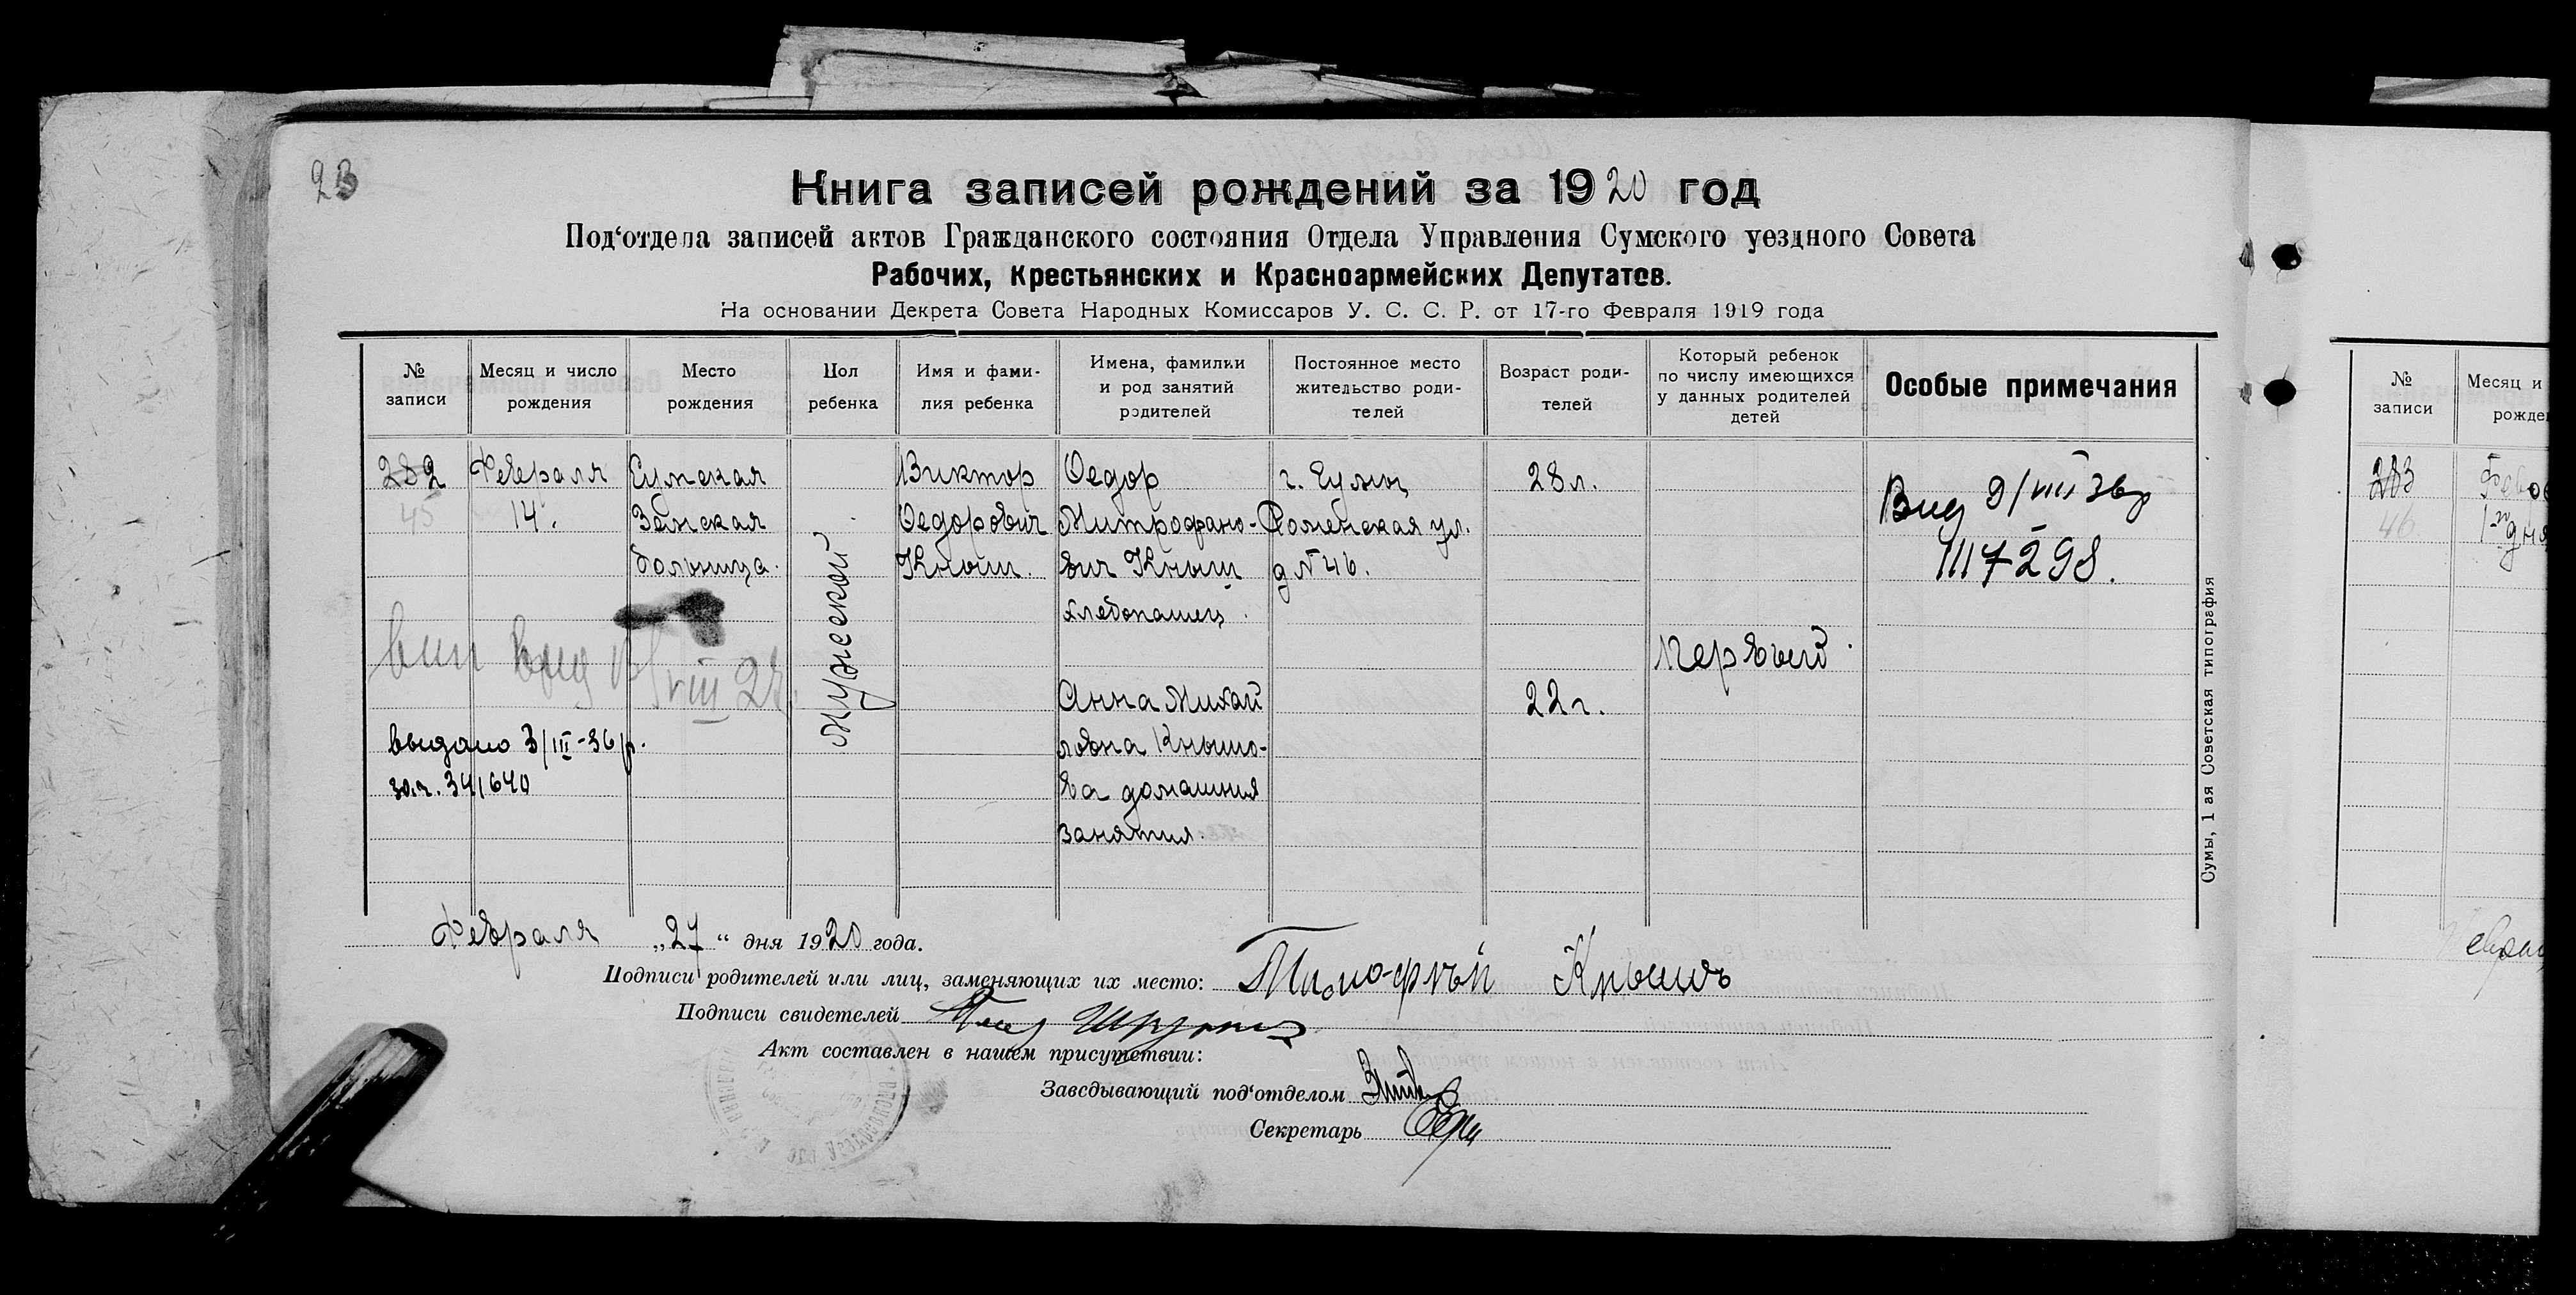 23
Книга записей рождений за 1920 год
Под‘отдела записей актов Гражданского состояния Отдела Управления Сумского уездного Совета
Рабочих, Крестьянских и Красноармейских Депутатов.
На основании Декрета Совета Народных Комиссаров У. С. С. Р. от 17-го Февраля 1919 года
№
записи
Месяц и число
рождения
Место
рождения
Пол
ребенка
Имя и фами-
лия ребенка
Имена, фамилии
и род занятий
родителей
Постоянное место
жительство роди-
телей
Возраст роди-
телей
Который ребенок
по числу имеющихся
у данных родителей
детей
Особые примечания
282
45
Февраля
14.
Сумская
Земская
больница.
мужеской
Виктор
Федорович
Кныш.
Федор
Митрофано-
вич Кныш
хлебопашец.
Анна Михай
ловна Кнышо-
ва домашния
занятия.
г. Сумы
Роменская ул.
д № 46.
28 л.
22 г.
Первый.
Вид 9/VIII 36р
1117298.
VIII
выдано 3/III-36 р.
341640
Февраля „27“ дня 1920 года.
Подписи родителей или лиц, заменяющих их место: Тимофей Кнышъ
Подписи свидетелей
Акт составлен в нашем присутствии:
Заведывающий под‘отделом
Секретарь
Сумы, 1 ая Советская типография
№
записи
Месяц и
283
46